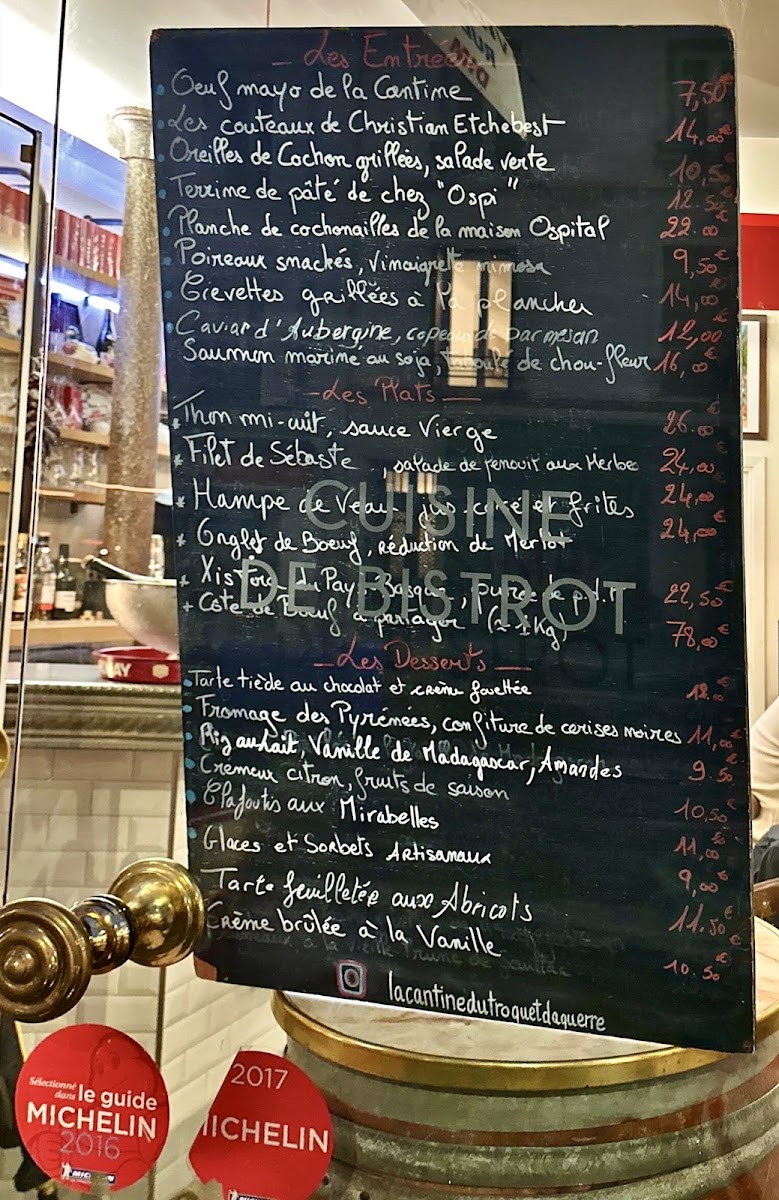 Les Entrées
Oeuf mayo de la Cantine 7,50€
Les couteaux de Christian Etchebest 14,00€
Oreilles de Cochon grillées, salade verte 10,50€
Terrine de pâté de chez "Ospi" 12.50€
Planche de cochonailles de la maison Ospital 22.00€
Poireaux snackés, vinaigrette mimosa 9,50€
Crevettes grillées à la plancha 14,00€
Caviar d'Aubergine, copeaux de Parmesan 12,00€
Saumon mariné au soja, taboulé de chou-fleur 16,00€
Les Plats
Thon mi-cuit, sauce Vierge 26.00€
Filet de Sébaste, salade de fenouil aux Herbes 24,00€
Hampe de Veau jus et frites 24,00€
Onglet de Boeuf, réduction de Merlot 24,00€
Xistorra du Pays Basque, purée de p.d.t 22,50€
+ Côte de Boeuf à partager (≈ 1Kg) 78,00€
CUISINE
DE BISTROT
Les Desserts
Tarte tiède au chocolat et crème fouettée 12.00€
Fromage des Pyrénées, confiture de cerises noires 11,00€
Riz au lait, Vanille de Madagascar, Amandes 9.50€
Crémeux citron, fruits de saison 10,50€
Clafoutis aux Mirabelles 11,00€
Glaces et Sorbets Artisanaux 9,00€
Tarte feuilletée aux Abricots 11.50€
Crème brûlée à la Vanille 10.50€
lacantinedutroquetdaguerre
Sélectionné
dans le guide
MICHELIN
2016
2017
MICHELIN